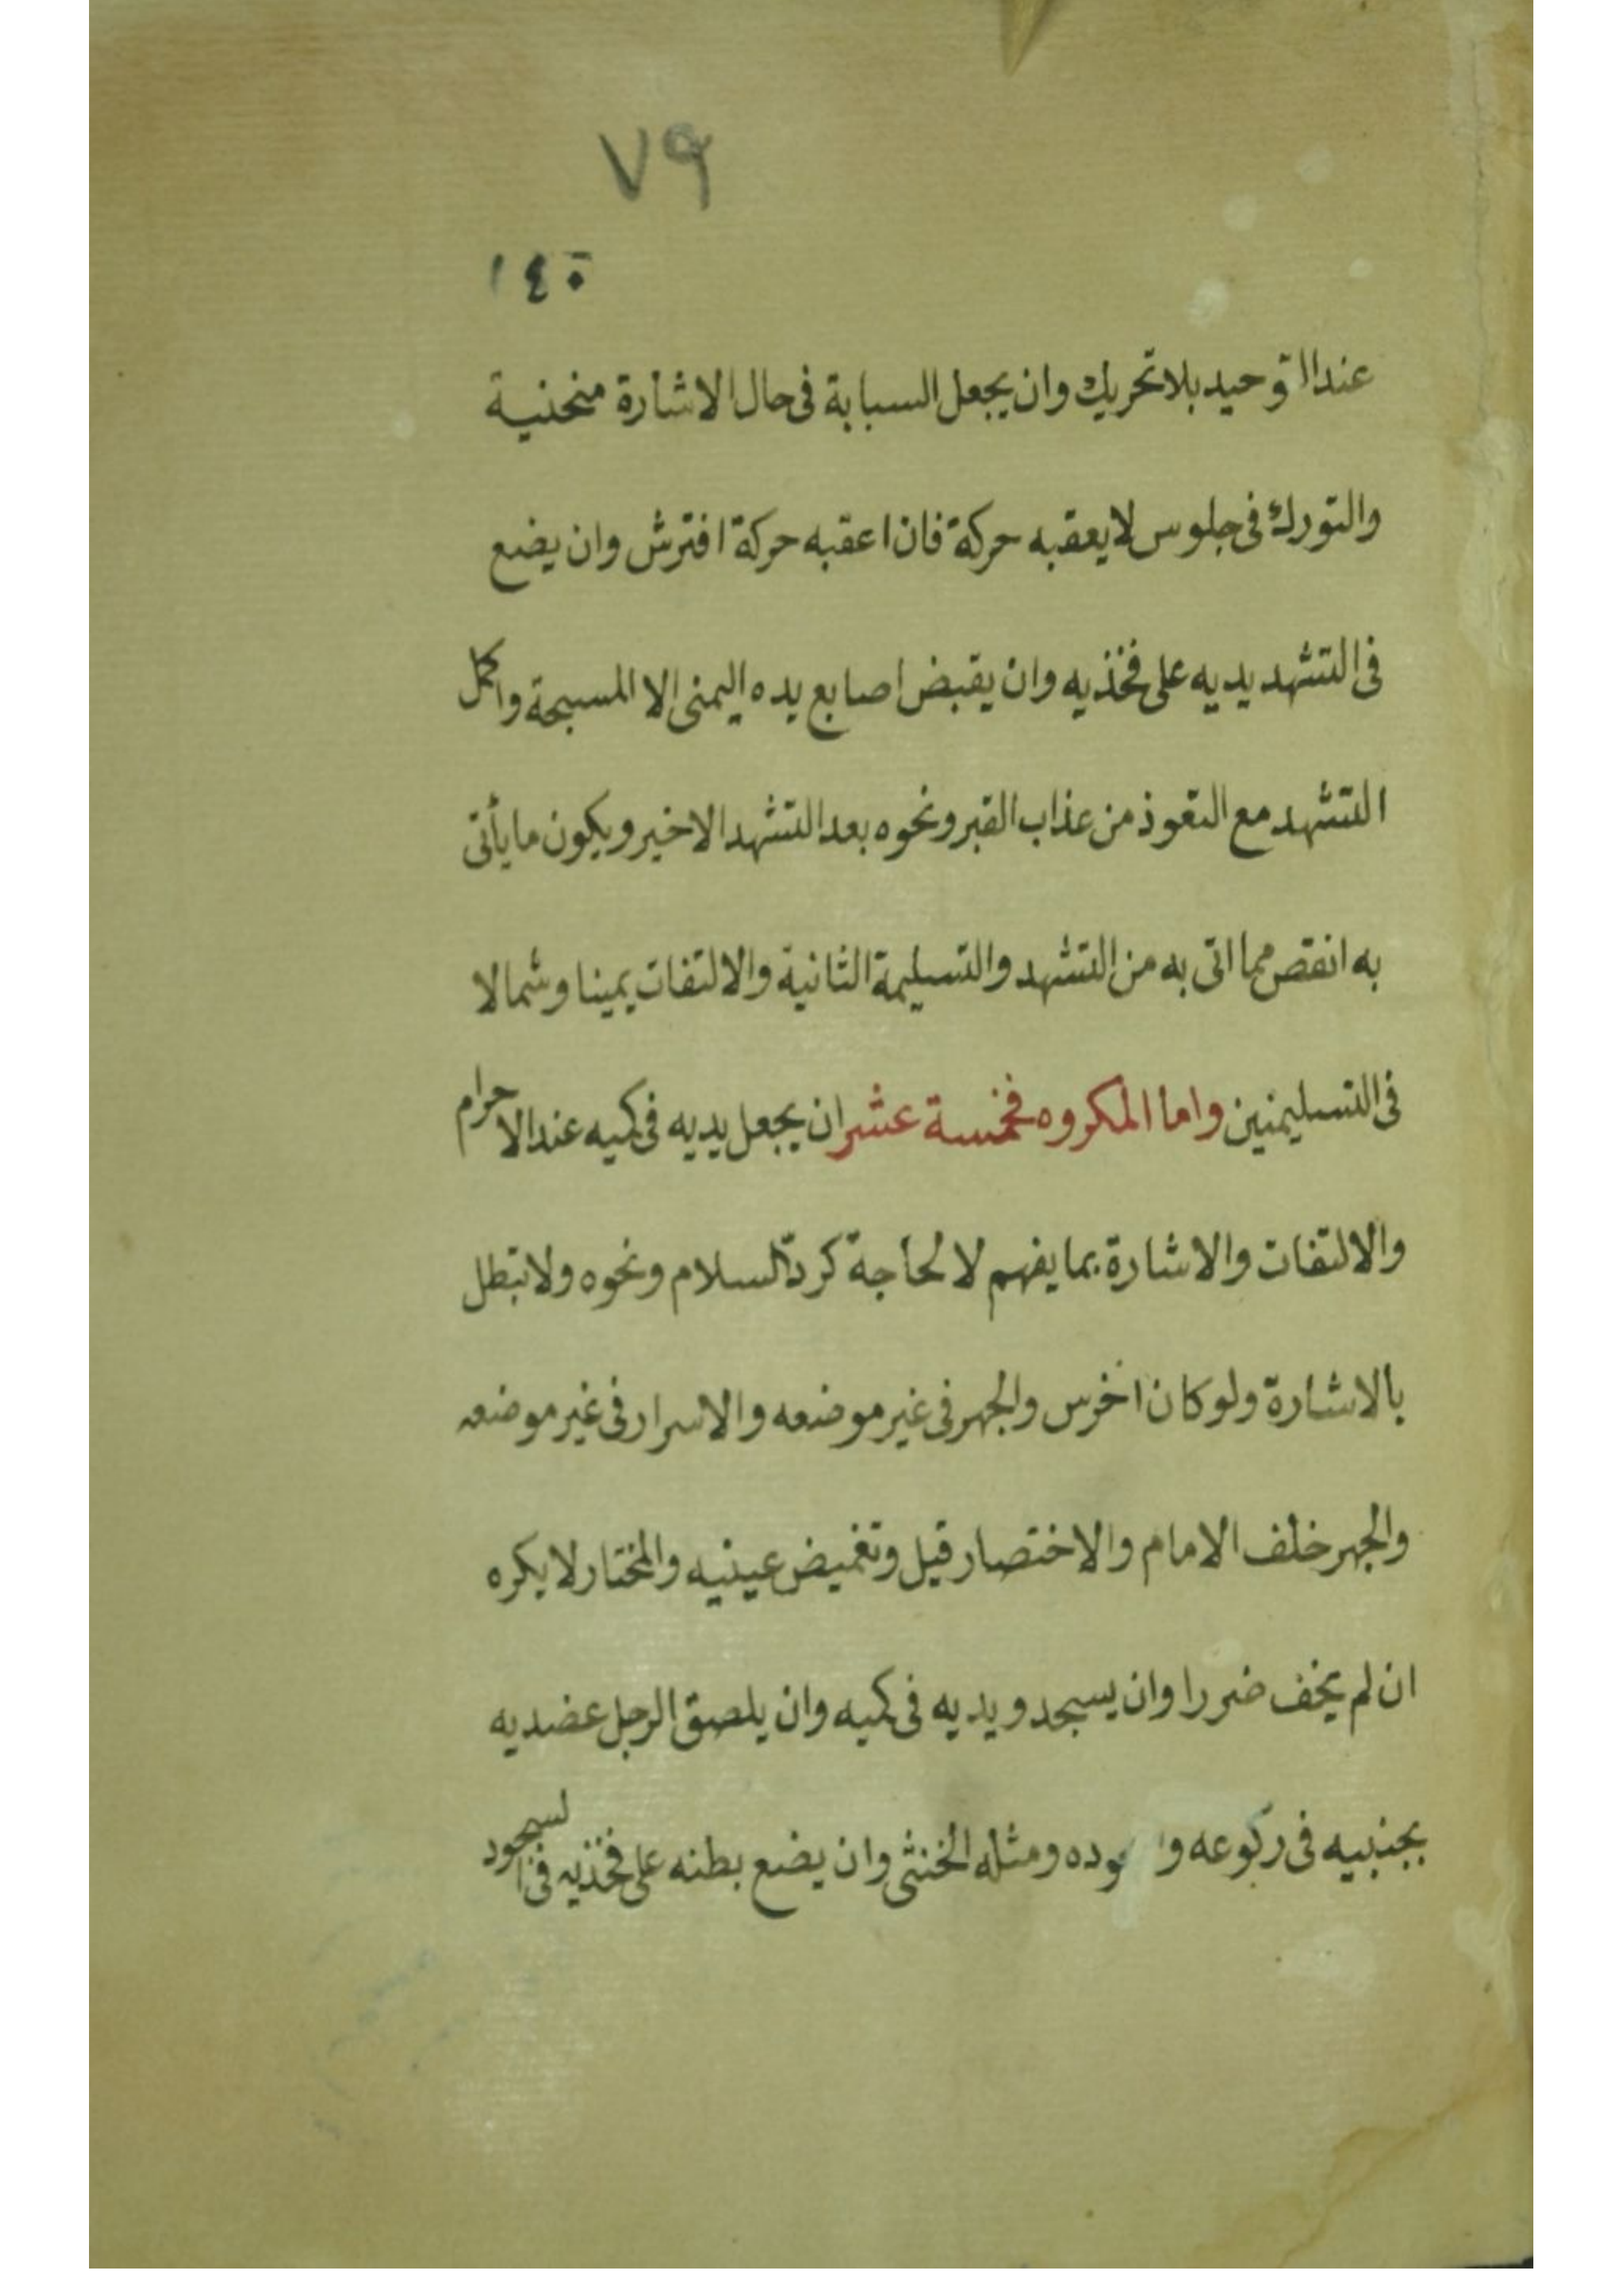 ٧٩
١٤٠
عند التوحيد بلا تحريك وان يجعل السبابة فى حال الاشارة منحنية
والتورك فى جلوس لا يعقبه حركة فان اعقبه حركة افترش وان يضع
فى التشهد يديه على فخذيه وان يقبض اصابع يده اليمنى الا المسبحة واكمل
التشهد مع التعوذ من عذاب القبر ونحوه بعد التشهد الاخير ويكون ما يأتى
به انقص مما اتى به من التشهد والتسليمة الثانية والالتفات يمينا وشمالا
فى التسليمتين واما المكروه فخمسة عشر ان يجعل يديه فى كميه عند الاحرام
والالتفات والاشارة بما يفهم لا لحاجة كردّ السلام ونحوه ولا تبطل
بالاشارة ولو كان اخرس والجهر فى غير موضعه والاسرار فى غير موضعه
والجهر خلف الامام والاختصار قيل وتغميض عينيه والمختار لا يكره
ان لم يخف ضررا وان يسجد ويديه فى كميه وان يلصق الرجل عضديه
بجنبيه فى ركوعه ومثله الخنثى وان يضع بطنه على فخذيه فى السجود